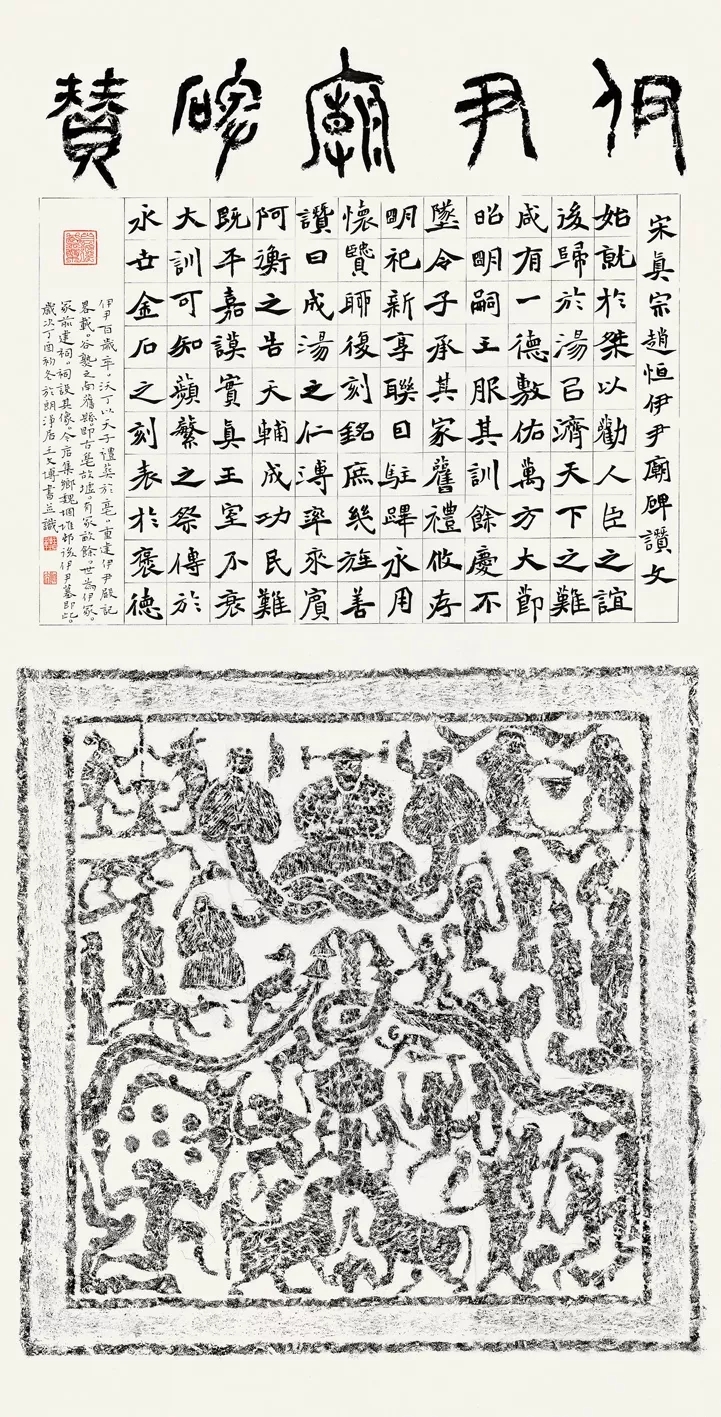 伊尹廟碑贊
宋眞宗趙恒伊尹廟碑讚文
始就於桀以勸人臣之誼
後歸於湯㠯濟天下之難
咸有一德敷佑萬方大節
昭明嗣王服其訓餘慶不
墜令子承其家舊禮攸存
明祀新享聯日駐蹕永用
懷賢聊復刻銘庶幾旌善
讚曰成湯之仁溥率來賓
阿衡之告天輔成功民難
既平嘉謨實眞王室不衰
大訓可知蘋蘩之祭傳於
永世金石之刻表於褒德
伊尹百歲卒。沃丁以天子禮葬於亳。重建伊尹殿記
畧載。谷熟之南舊縣。即古亳故墟。有冢畝餘。世為伊冢。
冢前建祠。祠設其像。今店集鄉魏堌堆邨後伊尹墓即此。
歲次丁酉初冬於朗淨居王文博書並識